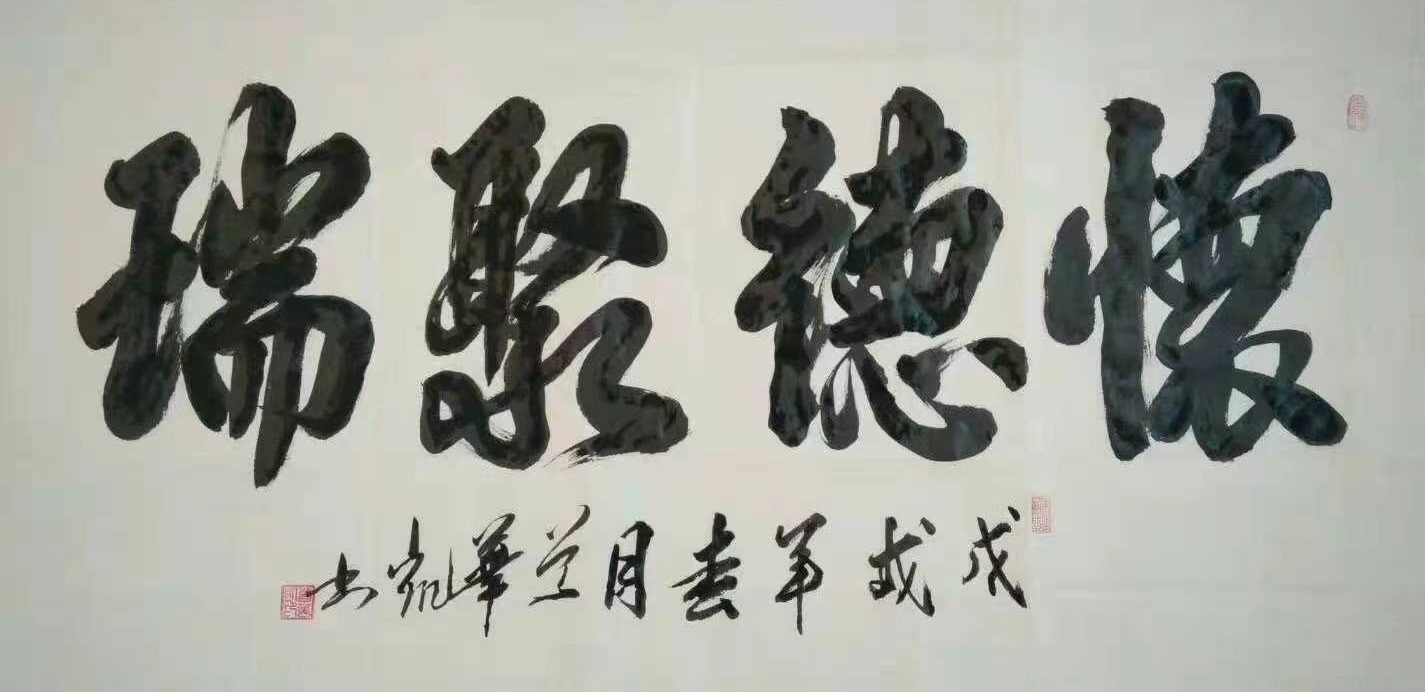 懷德聚瑞
戊戌年春月兰華凯书